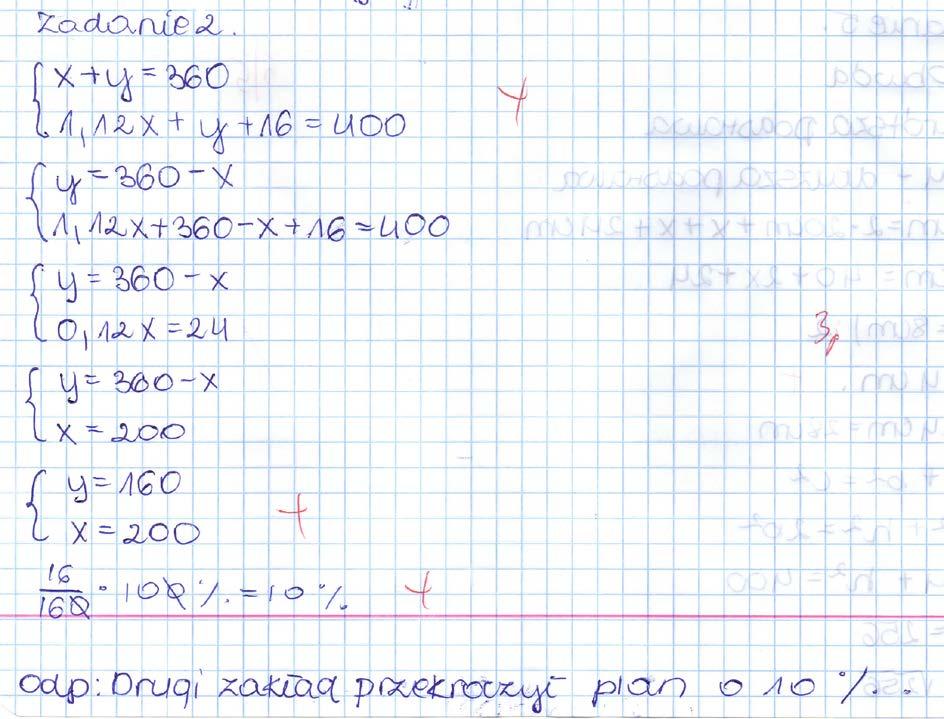 Zadanie 2.
x + y = 360
1,12x + y + 16 = 400
y = 360 - x
1,12x + 360 - x + 16 = 400
y = 360 - x
0,12x = 24
3p
y = 360 - x
x = 200
y = 160
x = 200
16/160 · 100 % = 10 %
Odp: Drugi zakład przekroczył plan o 10 %.